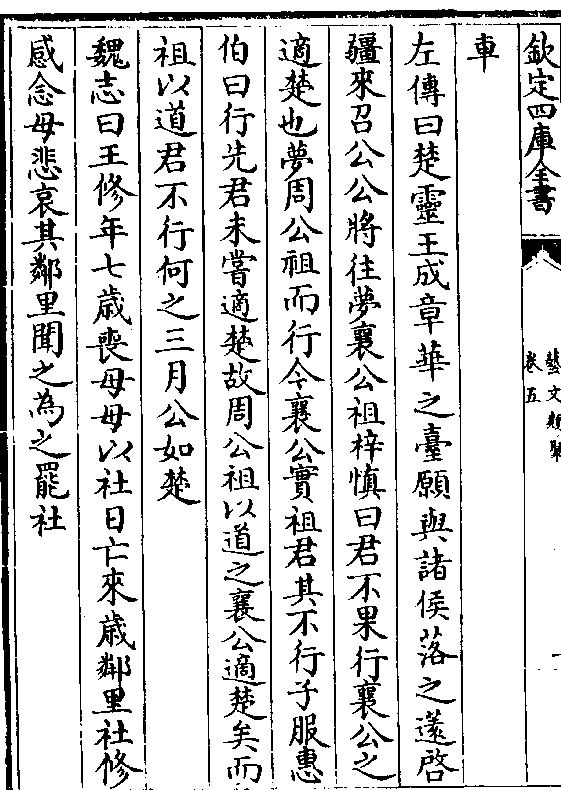 欽定四庫全書
藝文類聚
卷五
車
左傳曰楚靈王成章華之臺願與諸侯落之薳啓
疆來召公公將往夢襄公祖梓慎曰君不果行襄公之
適楚也夢周公祖而行今襄公實祖君其不行子服惠
伯曰行先君未嘗適楚故周公祖以道之襄公適楚矣而
祖以道君不行何之三月公如楚
魏志曰王修年七歲喪母母以社日亡來歲鄰里社修
感念母悲哀其鄰里聞之為之罷社